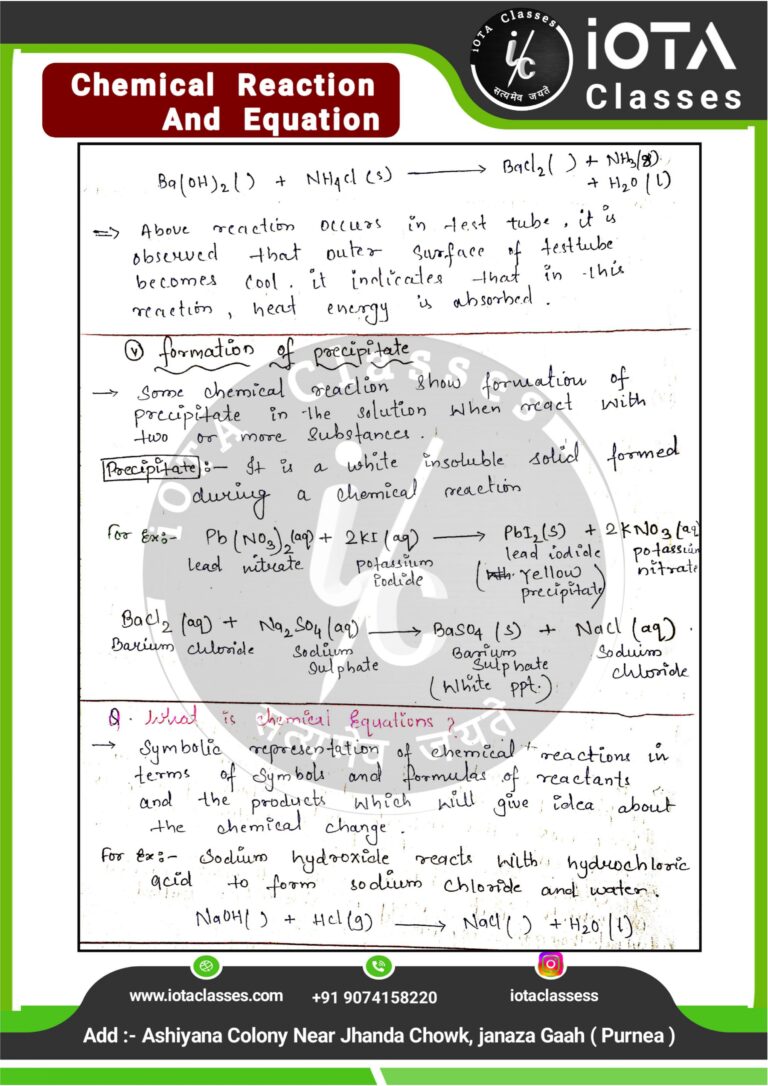 iOTA Classes
i/c
सत्यमेव जयते
iOTA
Classes
Chemical Reaction
And Equation
Ba(OH)2 ( ) + NH4Cl (s) ⟶ BaCl2 ( ) + NH3(g)
+ H2O (l)
=> Above reaction occurs in test tube, it is
observed that outer surface of testtube
becomes cool. it indicates that in this
reaction, heat energy is absorbed.
(v) formation of precipitate
→ Some chemical reaction show formation of
precipitate in the solution when react with
two or more substances.
Precipitate :- It is a white insoluble solid formed
during a chemical reaction
For Ex:- Pb(NO3)2 (aq) + 2KI (aq) ⟶ PbI2 (s) + 2KNO3 (aq)
lead nitrate potassium iodide lead iodide potassium nitrate
( Yellow precipitate)
BaCl2 (aq) + Na2SO4 (aq) ⟶ BaSO4 (s) + NaCl (aq).
Barium chloride Sodium Sulphate Barium Sulphate Soduim chloride
(White ppt.)
Q. What is chemical Equations?
→ Symbolic representation of chemical reactions in
terms of symbols and formulas of reactants
and the products which will give idea about
the chemical change.
For Ex:- Sodium hydroxide reacts with hydrochloric
acid to form sodium chloride and water.
NaOH ( ) + HCl (g) ⟶ NaCl ( ) + H2O (l)
iOTA Classes
i/c
सत्यमेव जयते
www.iotaclasses.com +91 9074158220 iotaclassess
Add :- Ashiyana Colony Near Jhanda Chowk, janaza Gaah ( Purnea )